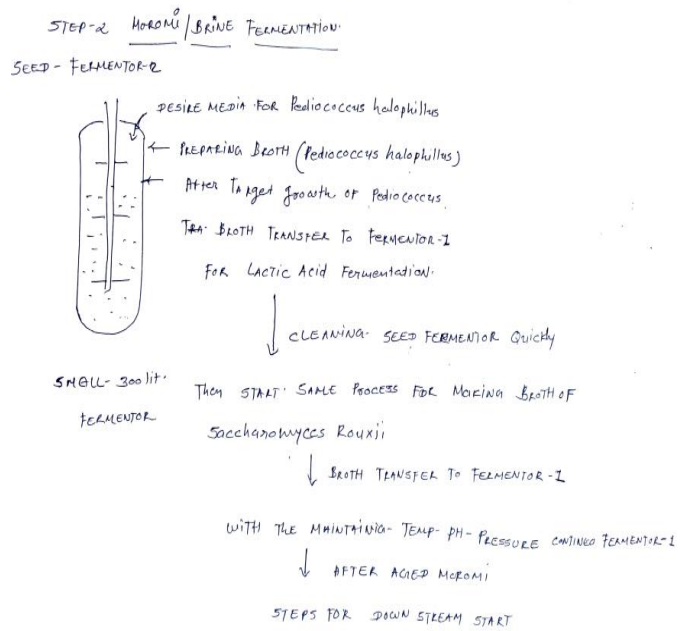 STEP-2 MOROMI/BRINE FERMENTATION.
SEED - FERMENTOR-2
DESIRE MEDIA FOR Pediococcus halophillus
PREPARING BROTH (Pediococcys halophillus)
After Target growth of Pediococcus
TRA. BROTH TRANSFER TO FERMENTOR-1
FOR LACTIC ACID Fermentation.
CLEANING SEED FERMENTOR Quickly
SMALL- 300 lit.
FERMENTOR
Then START SAME PROCESS FOR MAKING BROTH OF
Saccharomyces Rouxii
BROTH TRANSFER TO FERMENTOR-1
WITH THE MAINTAINIG- TEMP- PH- PRESSURE CONTINEO FERMENTOR-1
AFTER AGED MOROMI
STEPS FOR DOWN STREAM START